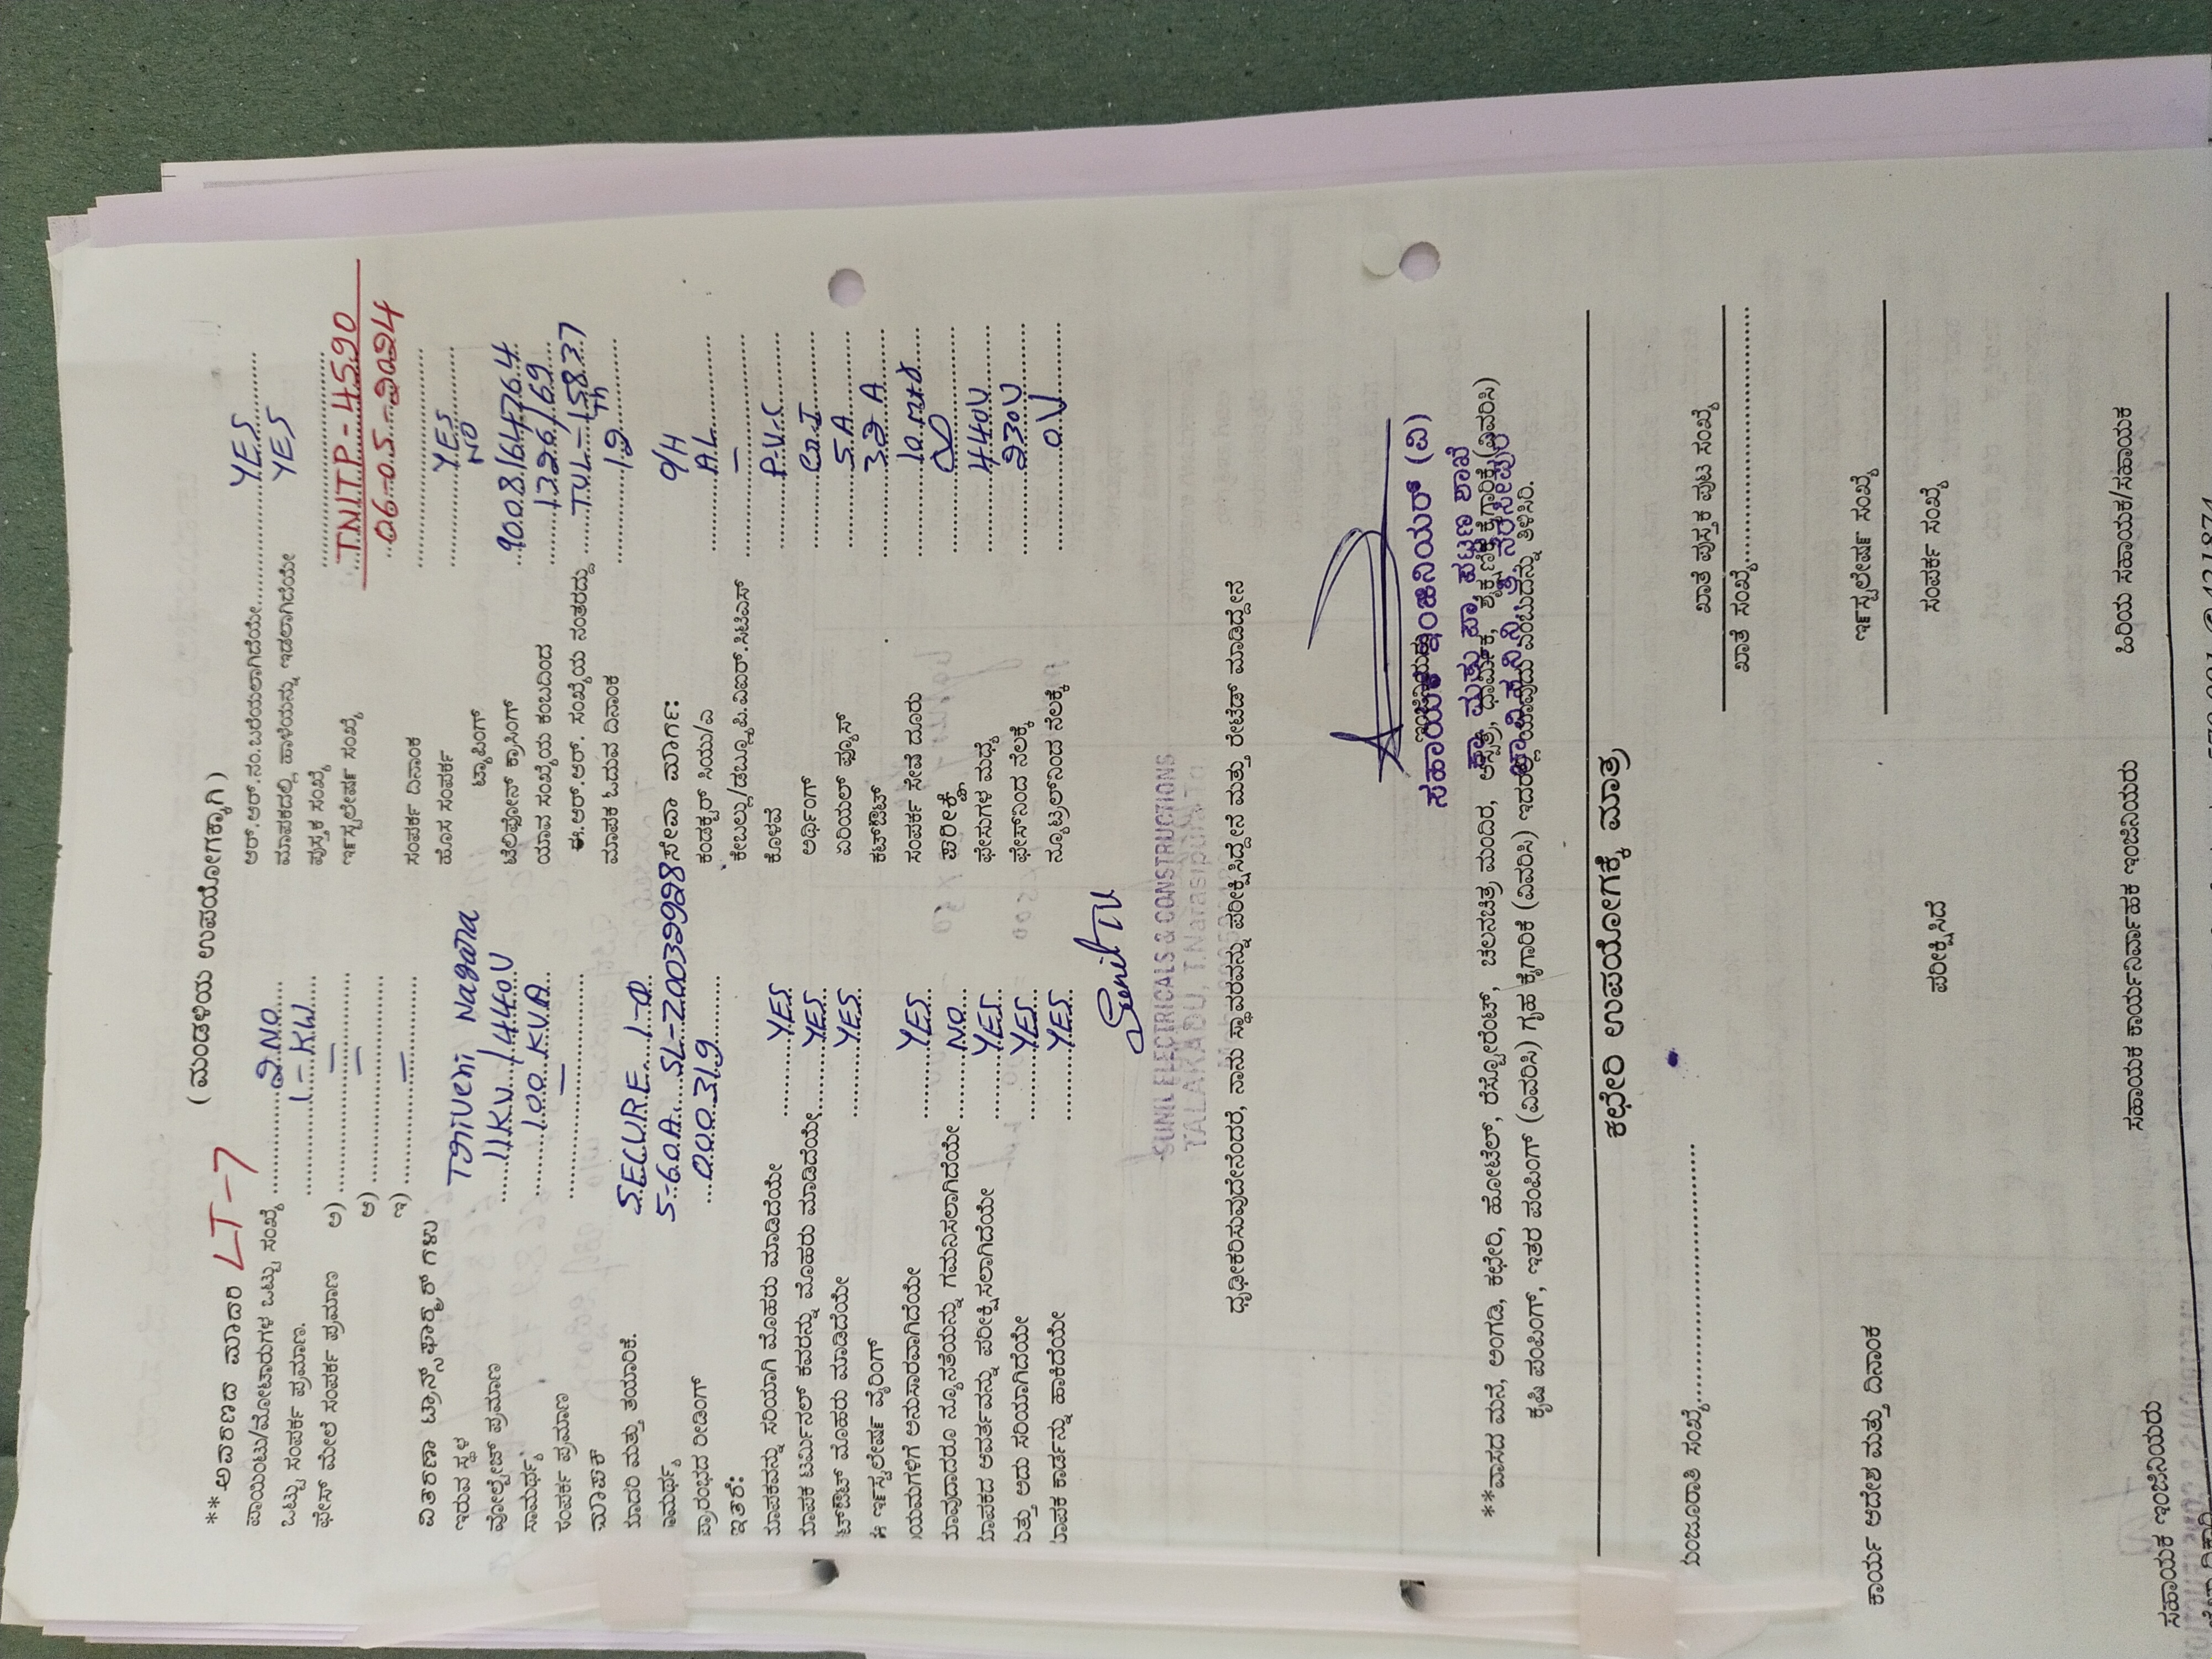 (ಮಂಡಳಿಯ ಉಪಯೋಗಕ್ಕಾಗಿ)
**ಆವರಣದ ಮಾದರಿ LT-7
ಪಾಯಿಂಟು/ಮೋಟಾರುಗಳ ಒಟ್ಟು ಸಂಖ್ಯೆ 2 No
ಒಟ್ಟು ಸಂಪರ್ಕ ಪ್ರಮಾಣ. 1-KW
ಫೇಸ್ ಮೇಲೆ ಸಂಪರ್ಕ ಪ್ರಮಾಣ ಅ) —
ಆ) —
ಇ) —
ವಿತರಣಾ ಟ್ರಾನ್ಸ್‌ಫಾರ್ಮರ್ ಗಳು
ಇರುವ ಸ್ಥಳ Triveni Nagara
ವೋಲ್ಟೇಜ್ ಪ್ರಮಾಣ 11KV/440V
ಸಾಮರ್ಥ್ಯ 100 KVA
ಸಂಪರ್ಕ ಪ್ರಮಾಣ —
ಮಾಪಕ
ಮಾದರಿ ಮತ್ತು ತಯಾರಿಕೆ. SECURE 1-Φ
ಸಾಮರ್ಥ್ಯ 5-60A SL-20039928
ಪ್ರಾರಂಭದ ರೀಡಿಂಗ್ 000319
ಇತರೆ:
ಮಾಪಕವನ್ನು ಸರಿಯಾಗಿ ಮೊಹರು ಮಾಡಿದೆಯೇ YES
ಮಾಪಕ ಟರ್ಮಿನಲ್ ಕವರನ್ನು ಮೊಹರು ಮಾಡಿದೆಯೇ YES
ಟ್‌ಔಟ್ ಮೊಹರು ಮಾಡಿದೆಯೇ YES
ಈ ಇನ್ಸ್ಟಲೇಷನ್ ವೈರಿಂಗ್
ಯಮಗಳಿಗೆ ಅನುಸಾರವಾಗಿದೆಯೇ YES
ಯಾವುದಾದರೂ ನ್ಯೂನತೆಯನ್ನು ಗಮನಿಸಲಾಗಿದೆಯೇ NO
ಮಾಪಕದ ಆವರ್ತವನ್ನು ಪರೀಕ್ಷಿಸಲಾಗಿದೆಯೇ YES
ಮತ್ತು ಅದು ಸರಿಯಾಗಿದೆಯೇ YES
ಮಾಪಕ ಕಾರ್ಡನ್ನು ಹಾಕಿದೆಯೇ YES
ಆರ್.ಆರ್.ನಂ.ಬರೆಯಲಾಗಿದೆಯೇ YES
ಮಾಪಕದಲ್ಲಿ ಹಾಳೆಯನ್ನು ಇಡಲಾಗಿದೆಯೇ YES
ಪುಸ್ತಕ ಸಂಖ್ಯೆ
ಇನ್ಸ್ಟಲೇಷನ್ ಸಂಖ್ಯೆ TNTP-4590
06-05-2024
ಸಂಪರ್ಕ ದಿನಾಂಕ
ಹೊಸ ಸಂಪರ್ಕ YES
ಟ್ಯಾಪಿಂಗ್ NO
ಟೆಲಿಫೋನ್ ಕ್ರಾಸಿಂಗ್ 9008164764
ಯಾವ ಸಂಖ್ಯೆಯ ಕಂಬದಿಂದ 1326/69
ಈ.ಆರ್.ಆರ್. ಸಂಖ್ಯೆಯ ನಂತರದ್ದು TVL-15837
ಮಾಪಕ ಓದುವ ದಿನಾಂಕ 19th
ಸೇವಾ ಮಾರ್ಗ: O/H
ಕಂಡಕ್ಟರ್ ಸಿಯು/ಎ AL
ಕೇಬಲ್ಲು/ಡಬ್ಲ್ಯೂ.ಪಿ.ವಿಐಆರ್.ಸಿಟಿಎಸ್ —
ಕೊಳವೆ P.V.C
ಅರ್ಥಿಂಗ್ G.I
ಏರಿಯಲ್ ಫ್ಯೂಸ್ 5A
ಕಟ್‌ಔಟ್ 32 A
ಸಂಪರ್ಕ ಸೇವೆ ದೂರು 10 mtr
ಪರೀಕ್ಷೆ ∞
ಫೇಸುಗಳ ಮಧ್ಯೆ 440V
ಫೇಸ್‌ನಿಂದ ನೆಲಕ್ಕೆ 230V
ನ್ಯೂಟ್ರಲ್‌ನಿಂದ ನೆಲಕ್ಕೆ 0V
Sunil TV
SUNIL ELECTRICALS & CONSTRUCTIONS
TALAKADU, T.Narasipura
ಧೃಢೀಕರಿಸುವುದೇನೆಂದರೆ, ನಾನು ಸ್ಥಾವರವನ್ನು ಪರೀಕ್ಷಿಸಿದ್ದೇನೆ ಮತ್ತು ರೇಟೆಡ್ ಮಾಡಿದ್ದೇನೆ
ಸಹಾಯಕ ಇಂಜಿನಿಯರ್ (ವಿ)
ಕಾ ಮತ್ತು ಪಾ ಪಟ್ಟಣ ಶಾಖೆ
**ವಾಸದ ಮನೆ, ಅಂಗಡಿ, ಕಛೇರಿ, ಹೋಟೆಲ್, ರೆಸ್ಟೋರೆಂಟ್, ಚಲನಚಿತ್ರ ಮಂದಿರ, ಆಸ್ಪತ್ರೆ, ಧಾರ್ಮಿಕ, ಶೈಕ್ಷಣಿಕ ಕೈಗಾರಿಕೆ (ವಿವರಿಸಿ)
ಕೃಷಿ ಪಂಪಿಂಗ್, ಇತರ ಪಂಪಿಂಗ್ (ವಿವರಿಸಿ) ಗೃಹ ಕೈಗಾರಿಕೆ (ವಿವರಿಸಿ) ಇದರಲ್ಲಿ ಯಾವುದು ಎಂಬುದನ್ನು ತಿಳಿಸಿರಿ.
ಕಛೇರಿ ಉಪಯೋಗಕ್ಕೆ ಮಾತ್ರ
ಮಂಜೂರಾತಿ ಸಂಖ್ಯೆ
ಖಾತೆ ಪುಸ್ತಕ ಪುಟ ಸಂಖ್ಯೆ
ಖಾತೆ ಸಂಖ್ಯೆ
ಕಾರ್ಯ ಆದೇಶ ಮತ್ತು ದಿನಾಂಕ
ಇನ್ಸ್ಟಲೇಷನ್ ಸಂಖ್ಯೆ
ಪರೀಕ್ಷಿಸಿದೆ
ಸಂಪರ್ಕ ಸಂಖ್ಯೆ
ಸಹಾಯಕ ಇಂಜಿನಿಯರು
ಸಹಾಯಕ ಕಾರ್ಯನಿರ್ವಾಹಕ ಇಂಜಿನಿಯರು
ಹಿರಿಯ ಸಹಾಯಕ/ಸಹಾಯಕ